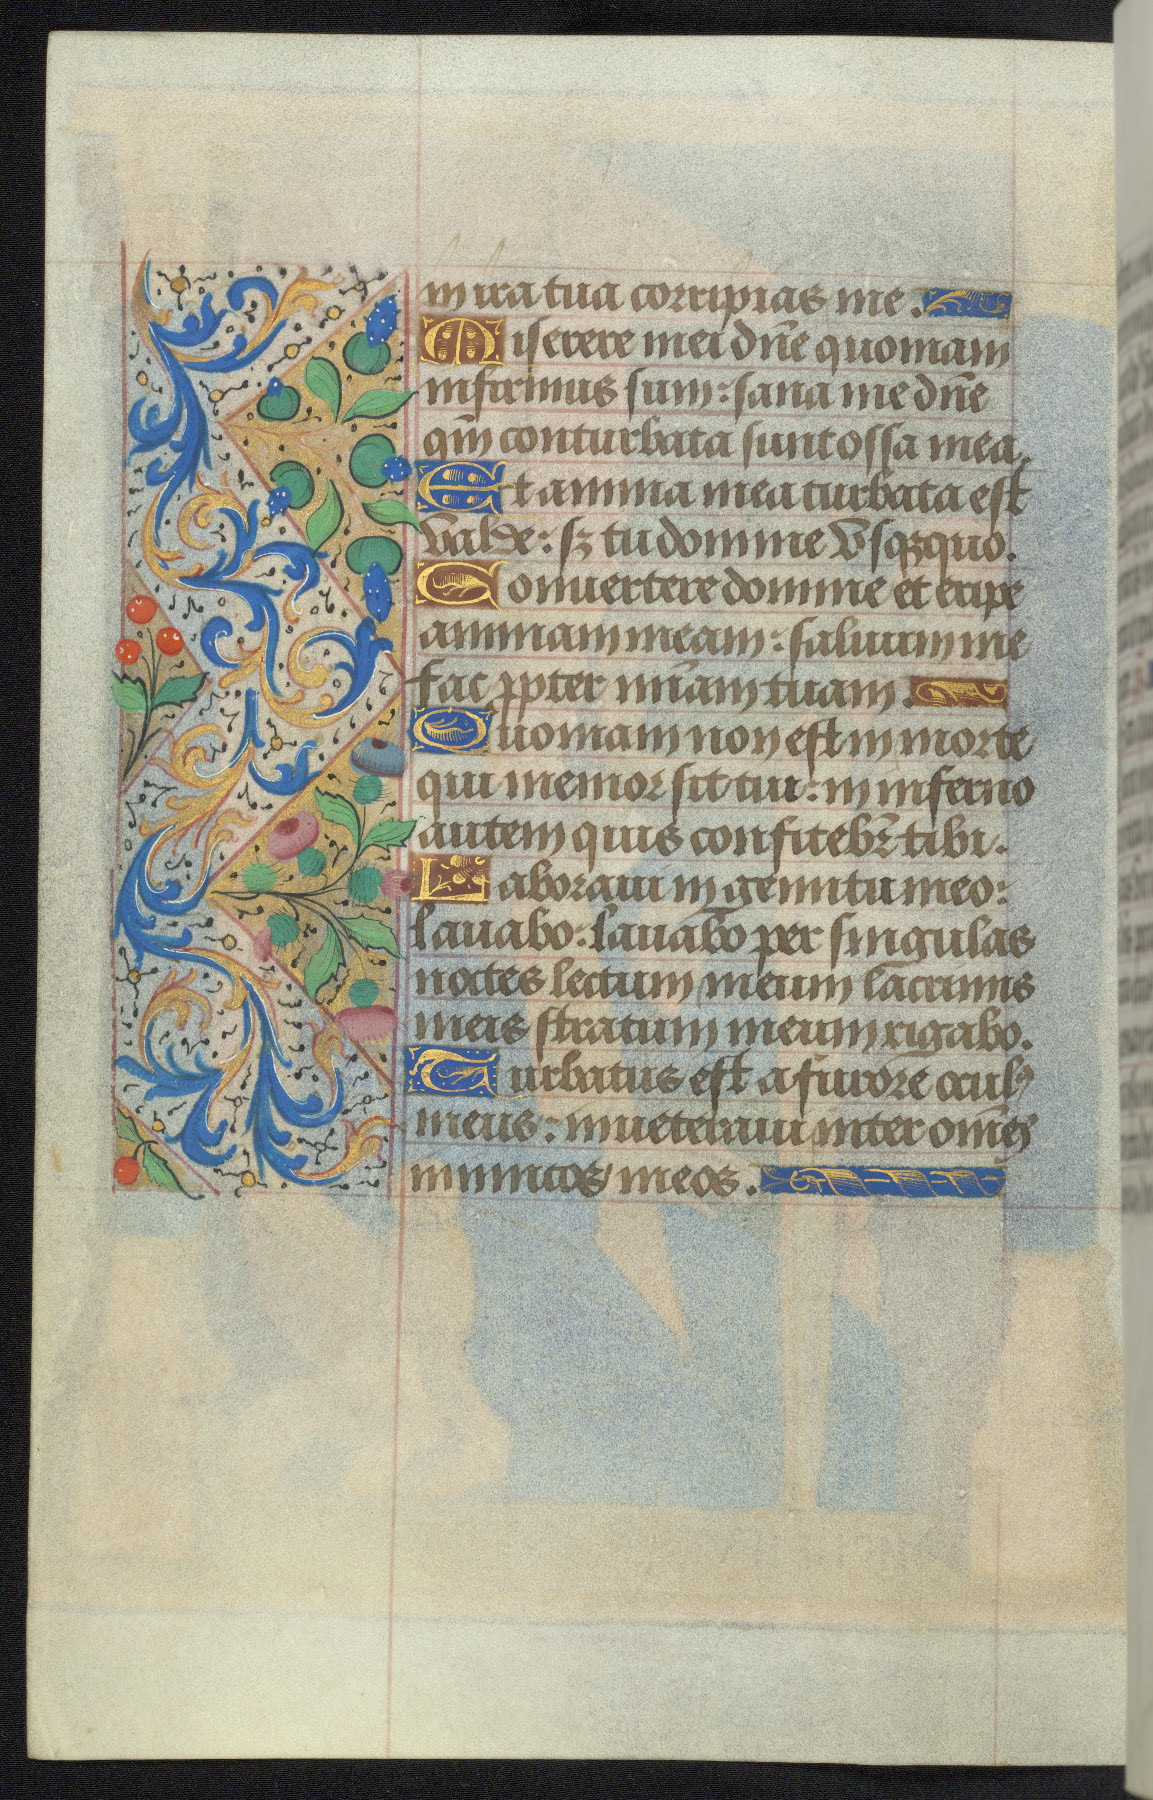 in ira tua corripias me.
Miserere mei dñe quoniam
infirmus sum: sana me dñe
qm̄ conturbata sunt ossa mea.
Et anima mea turbata est
valde: sꝫ tu domine vsqꝫquo.
Conuertere domine et eripe
animam meam: saluum me
fac ꝓpter mīam tuam.
Quoniam non est in morte
qui memor sit tui: in inferno
autem quis confitebr̄ tibi.
Laboraui in gemitu meo:
lauabo: lauabo per singulas
noctes lectum meum lacrimis
meis stratum meum rigabo.
Turbatus est a furore oculꝰ
meus: inueteraui inter om̄es
inimicos meos.